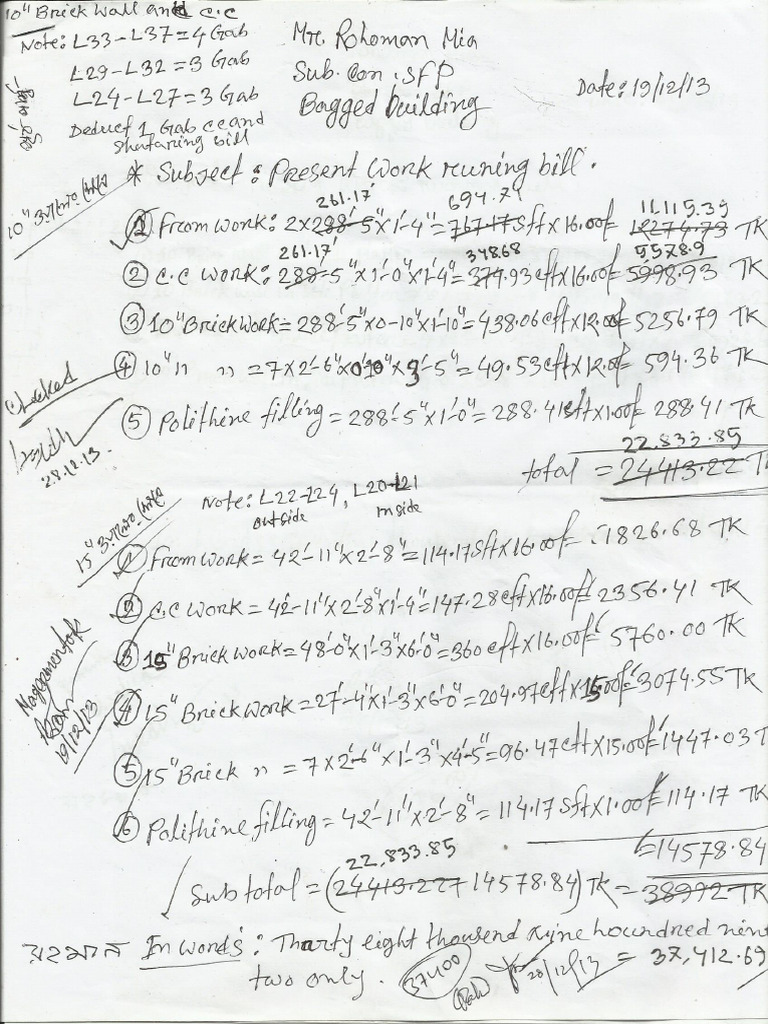 10" Brick Wall and C.C
Note: L33-L37=4 Gab
L29-L32=3 Gab
L24-L27=3 Gab
Deduct 1 Gab cc and
Shutaring bill
Mr. Rohoman Mia
Sub. Con. SFP
Bagged building
Date: 19/12/13
* Subject: Present Work runing bill.
261.17' 694.71 11,115.39
① From Work: 2x288'-5"x1'-4"=767.17 Sft x 16.00/= 12274.73 TK
261.17' 348.68 5,578.9
② C.C Work: 288'-5"x1'-0"x1'-4"=374.93 cft x 16.00/= 5998.93 TK
③ 10" Brick Work=288'-5"x0-10"x1'-10"=438.06 cft x 12.00/= 5256.79 TK
④ 10" " "=7x2'-6"x0'10"x3'-5"=49.53 cft x 12.0/= 594.36 TK
⑤ Polithine filling=288'-5"x1'-0"=288.41 sft x 1.00/= 288.41 TK
Checked
28.12.13.
22,833.85
total = 24413.22 T
Note: L22-L24, L20-L21
outside inside
① From Work=42'-11"x2'-8"=114.17 Sft x 16.00/= 1826.68 TK
② C.C Work=42'-11"x2'-8"x1'-4"=147.28 cft x 16.00/= 2356.41 TK
③ 15" Brick Work=48'-0"x1'-3"x6'-0"=360 cft x 16.00/= 5760.00 TK
④ 15" Brick Work=27'-4"x1'-3"x6'-0"=204.97 cft x 15.00/= 3074.55 TK
⑤ 15" Brick "=7x2'-6"x1'-3"x4'-5"=96.47 cft x 15.00/= 1447.03 T
⑥ Palithine filling=42'-11"x2'-8"=114.17 Sft x 1.00/= 114.17 TK
19/12/13
=14578.84
22,833.85
Sub total = (24413.227 14578.84) TK = 38992 TK
রহমান In words: Tharty eight thousend nyne houndred nin
two only. 37400 28/12/13 = 37,412.69